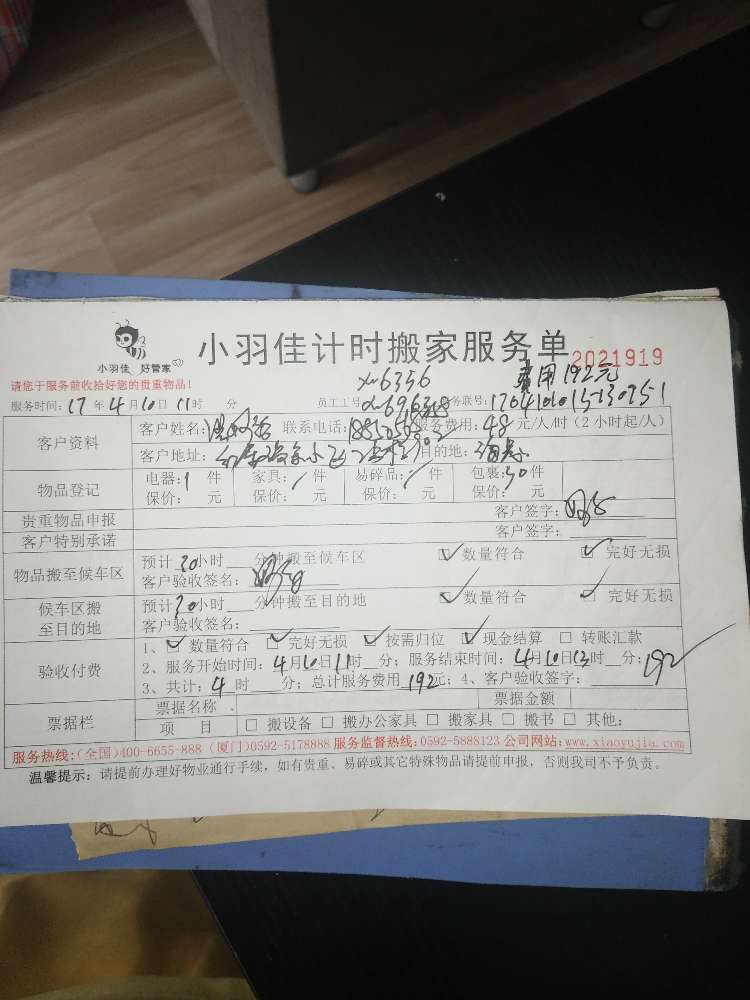 小羽佳 好管家
小羽佳计时搬家服务单 2021919
请您于服务前收拾好您的贵重物品!
xm6356 费用192元
服务时间: 17年4月10日11时 分 员工工号: 务联号:
客户资料
客户姓名: 联系电话: 服务费用: 48元/人/时(2小时起/人)
客户地址: 目的地:
物品登记
电器:1件 家具:/件 易碎品:/件 包裹:30件
保价: 元 保价: 元 保价: 元 保价: 元
贵重物品申报 客户签字:
客户特别承诺 客户签字:
物品搬至候车区
预计 30小时 分钟搬至候车区 ☑数量符合 ☑完好无损
客户验收签名:
候车区搬至目的地
预计30小时 分钟搬至目的地 ☑数量符合 ☑完好无损
客户验收签名:
验收付费
1、☑数量符合 ☑完好无损 ☑按需归位 ☑现金结算 □转账汇款
2、服务开始时间: 4月10日11时 分; 服务结束时间: 4月10日13时 分; 192
3、共计: 4时 分; 总计服务费用 192元; 4、客户验收签字:
票据栏
票据名称 票据金额
项 目 □搬设备 □搬办公家具 □搬家具 □搬书 □其他:
服务热线:(全国)400-6655-888 (厦门)0592-5178888 服务监督热线:0592-5888123 公司网站:www.xiaoyujia.com
温馨提示: 请提前办理好物业通行手续, 如有贵重、易碎或其它特殊物品请提前申报, 否则我司不予负责。